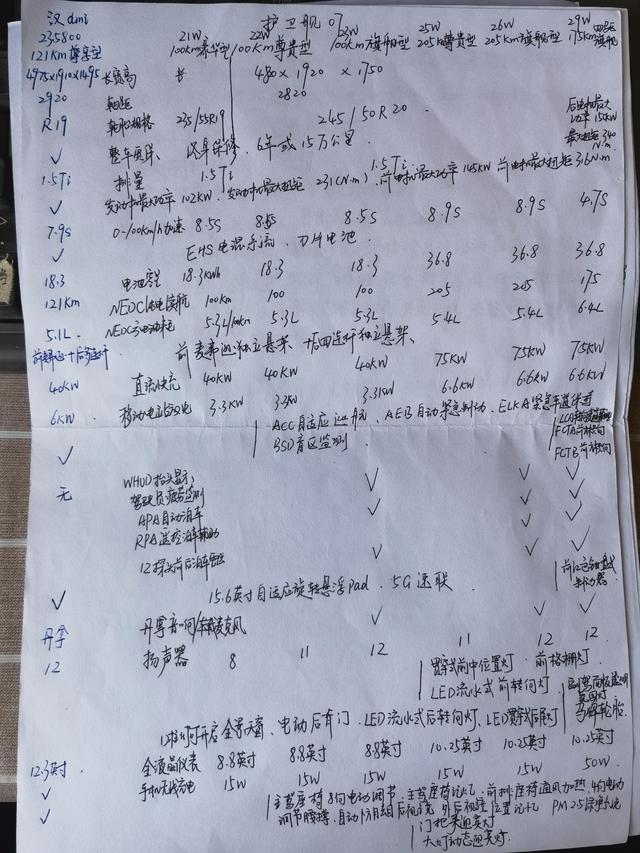 汉 dmi 护卫舰 07
235800 21W 22W 23W 25W 26W 29W
121KM 尊荣型 100km豪华型 100km尊贵型 100km旗舰型 205km尊贵型 205km旗舰型 175km 四驱旗舰
4975×1910×1495 长宽高 4820×1920×1750
2920 轴距 2820
R19 轮胎规格 235/55R19 245/50R20 后电机最大功率 15KW
✓ 整车质保 终身保修, 6年或15万公里 最大扭距 340 N·m
1.5Ti 排量 1.5Ti 1.5Ti
✓ 发动机最大功率 102KW, 发动机最大扭距 231(N·m), 前电机最大功率 145KW 前电机最大扭距 316N·m
7.9S 0-100km/h加速 8.5S 8.5S 8.5S 8.9S 8.9S 4.7S
✓ EHS电混系统, 刀片电池
18.3 电池容量 18.3KWh 18.3 18.3 36.8 36.8 36.8
121Km NEDC纯电续航 100Km 100 100 205 205 175
5.1L NEDC亏电油耗 5.3L/100km 5.3L 5.3L 5.4L 5.4L 6.4L
前麦弗逊+后多连杆 前麦弗逊独立悬架、+后四连杆独立悬架
40KW 直流快充 40KW 40KW 40KW 75KW 75KW 75KW
6KW 移动电站放电 3.3KW 3.3KW 3.3KW 6.6KW 6.6KW 6.6KW
✓ ACC自适应巡航、AEB自动紧急制动、ELKA紧急车道保持
BSD盲区监测 FCTA前横向
FCTB前横向
无 WHUD抬头显示 ✓ ✓ ✓
驾驶员疲劳监测 ✓ ✓ ✓
APA自动泊车 ✓ ✓ ✓
RPA遥控泊车辅助 ✓ ✓ ✓
12探头前后泊车雷达
✓ 15.6英寸自适应旋转悬浮Pad、5G速联
丹拿 丹拿音响/车载麦克风 ✓ ✓ ✓
12 扬声器 8 11 12 11 12 12
贯穿式前中位置灯、前格栅灯
LED流水式前转向灯
马牌轮胎
可开启全景天窗、电动后背门、LED流水式后转向灯、LED贯穿式后尾灯
12.3英寸 全液晶仪表 8.8英寸 8.8英寸 8.8英寸 10.25英寸 10.25英寸 10.25英寸
✓ 手机无线充电 15W 15W 15W 15W 15W 50W
✓ 主驾座椅8向电动调节、主驾座椅记忆、前排座椅通风加热、4向电动
调节腰撑、自动防眩目后视镜、外后视镜位置记忆 PM2.5
门把手迎宾灯
大灯动态迎宾灯